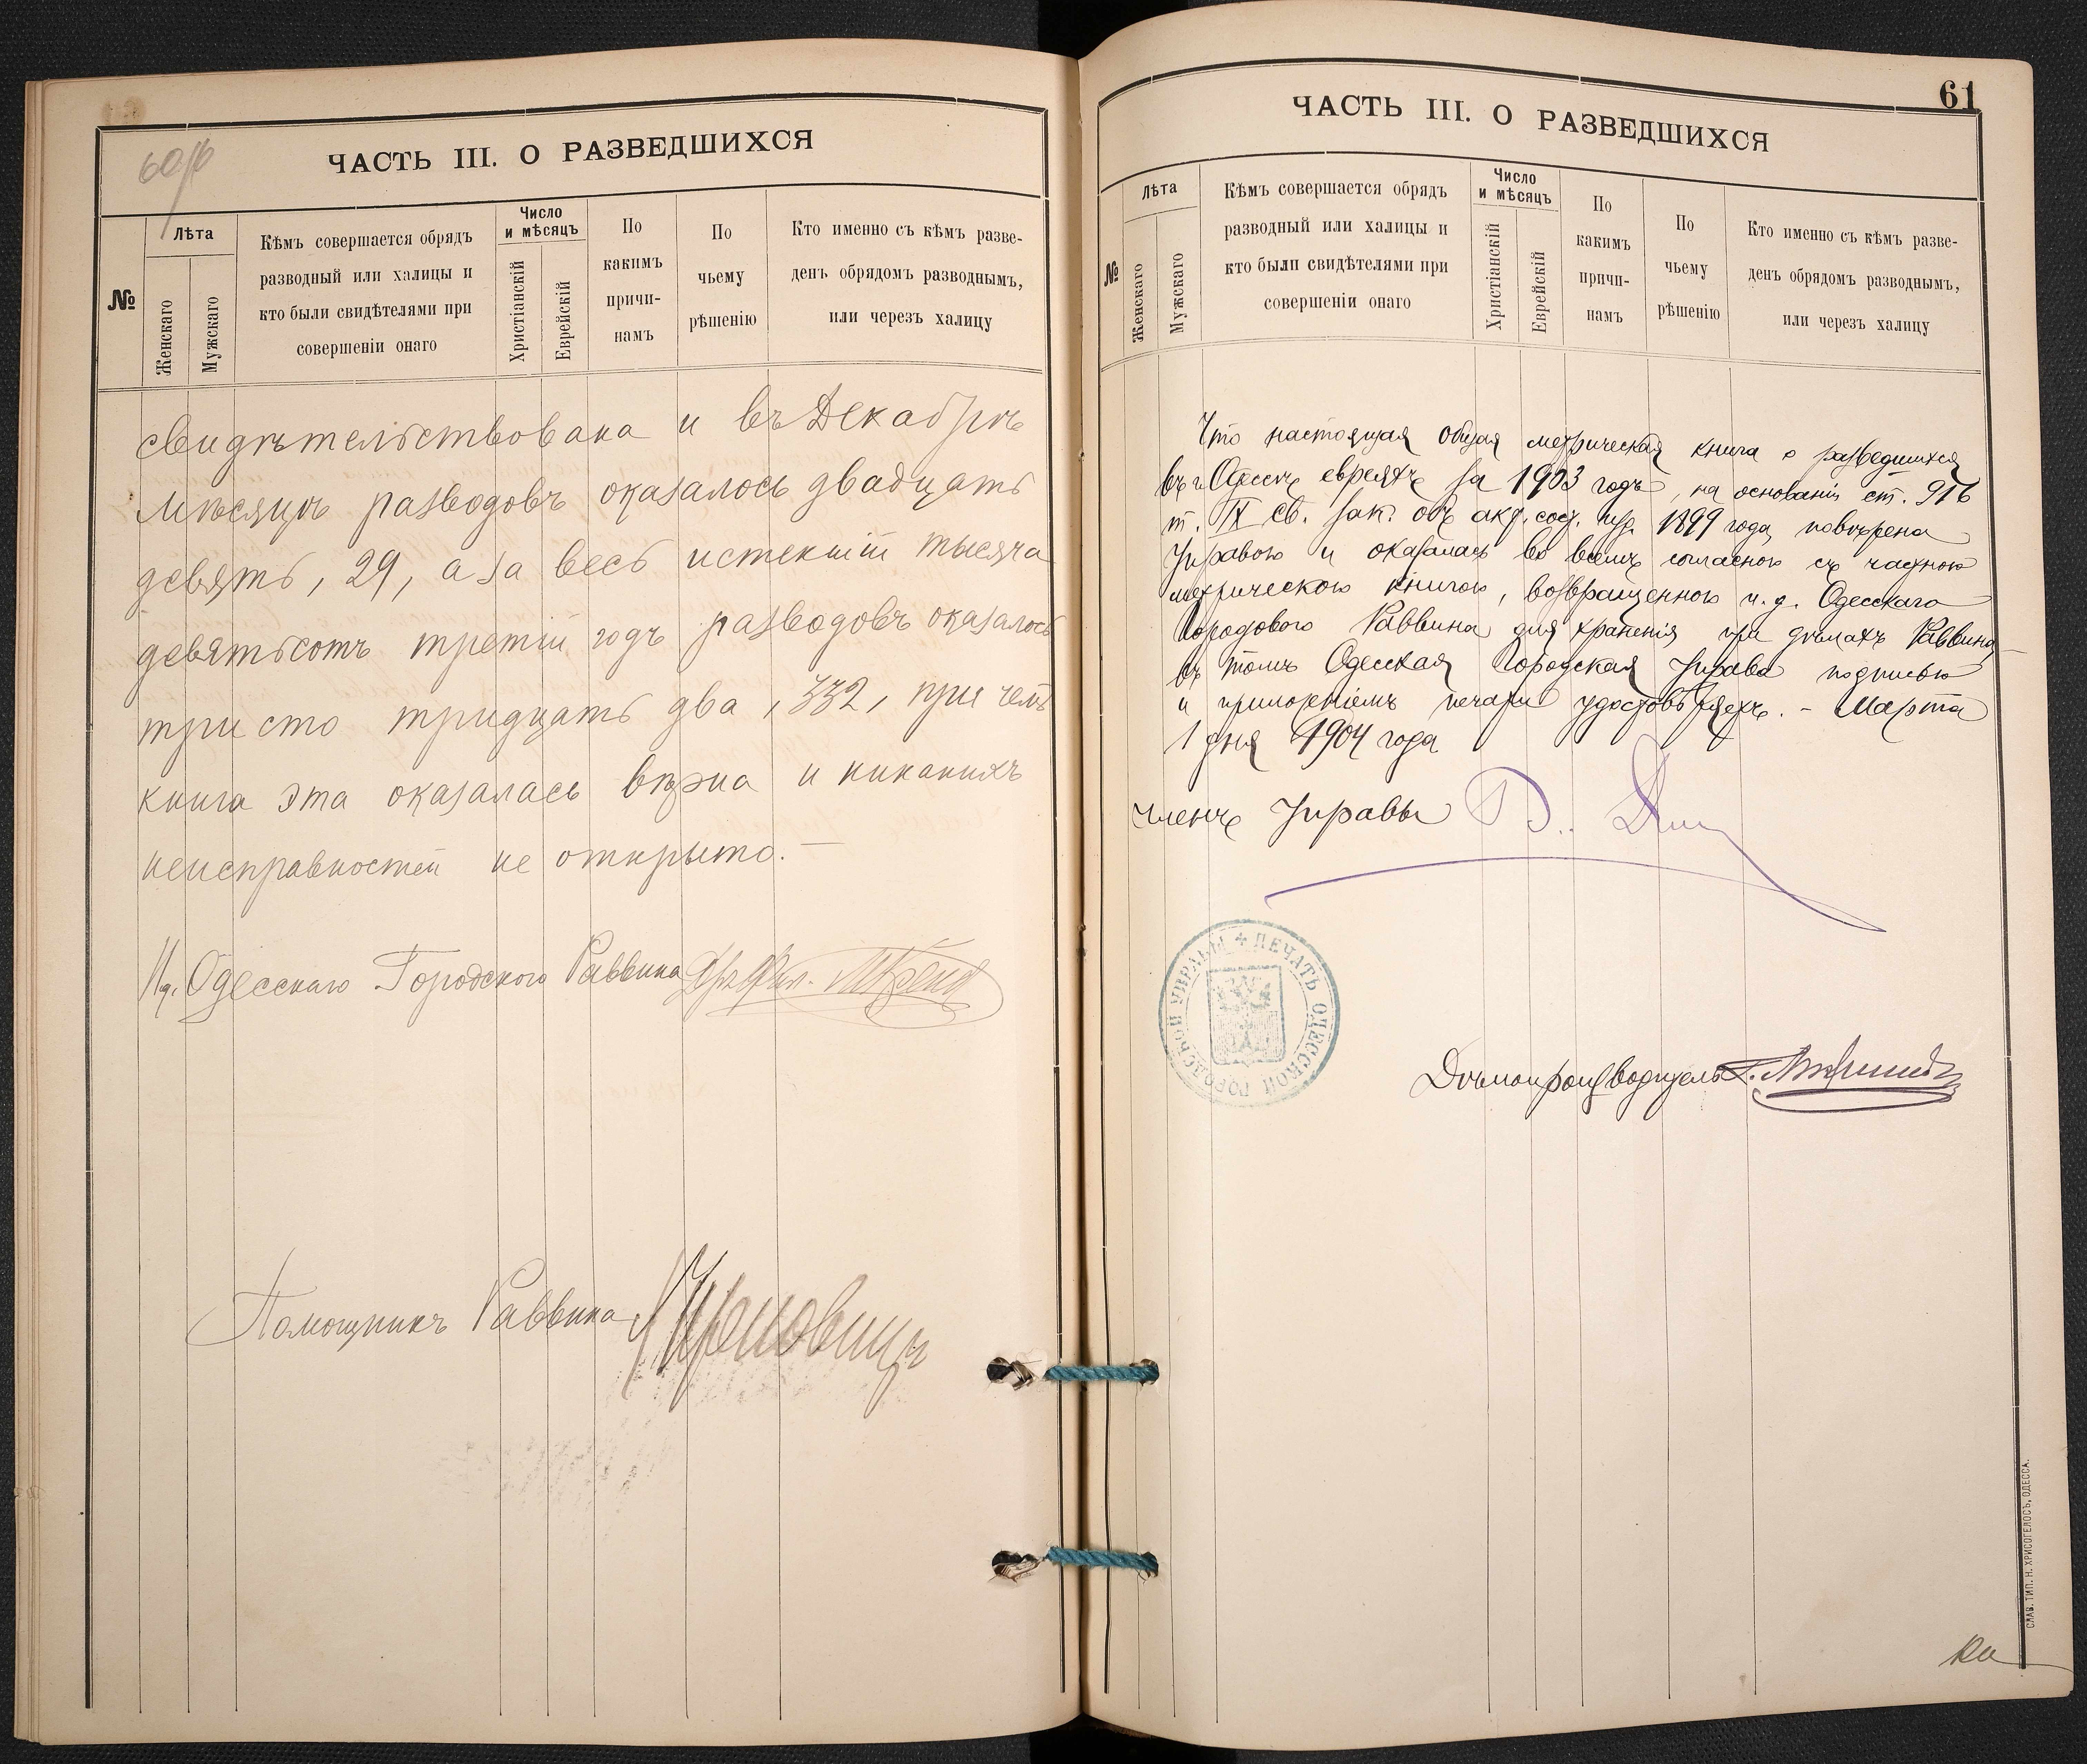 60об
ЧАСТЬ III. О РАЗВЕДШИХСЯ
№
Лѣта
Женскаго
Мужскаго
Кѣмъ совершается обрядъ
разводный или халицы и
кто были свидѣтелями при
совершеніи онаго
Число
и мѣсяцъ
Христіанскій
Еврейскій
По
какимъ
причи-
намъ
По
чьему
рѣшенію
Кто именно съ кѣмъ разве-
денъ обрядомъ разводнымъ,
или черезъ халицу
свидѣтельствована и въ Декабрѣ
мѣсяцѣ разводовъ оказалось двадцать
девять, 29, а за весь истекшій тысяча
девятьсотъ третій годъ разводовъ оказалось
триста тридцать два, 332, при чемъ
книга эта оказалась вѣрна и никакихъ
неисправностей не открыто. —
И.д. Одесскаго Городского Раввина
Помощникъ Раввина
61
ЧАСТЬ III. О РАЗВЕДШИХСЯ
№
Лѣта
Женскаго
Мужскаго
Кѣмъ совершается обрядъ
разводный или халицы и
кто были свидѣтелями при
совершеніи онаго
Число
и мѣсяцъ
Христіанскій
Еврейскій
По
какимъ
причи-
намъ
По
чьему
рѣшенію
Кто именно съ кѣмъ разве-
денъ обрядомъ разводнымъ,
или черезъ халицу
Что настоящая общая метрическая книга о разведшихся
въ г. Одессѣ евреяхъ за 1903 годъ, на основаніи ст. 916
т. IX св. зак. объ акт. сост. изд. 1899 года, повѣрена
Управою и оказалась во всемъ согласною съ частною
метрическою книгою, возвращенною и. д. Одесскаго
городового Раввина для храненія при дѣлахъ Раввина,
въ томъ Одесская Городская Управа подписью
и приложеніемъ печати удостовѣряетъ. - Марта
1 дня 1904 года
Членъ Управы
ПЕЧАТЬ ОДЕССКОЙ ГОРОДСКОЙ УПРАВЫ
Дѣлопроизводитель
СЛАВ. ТИП. Н. ХРИСОГЕЛОСЪ, ОДЕССА.